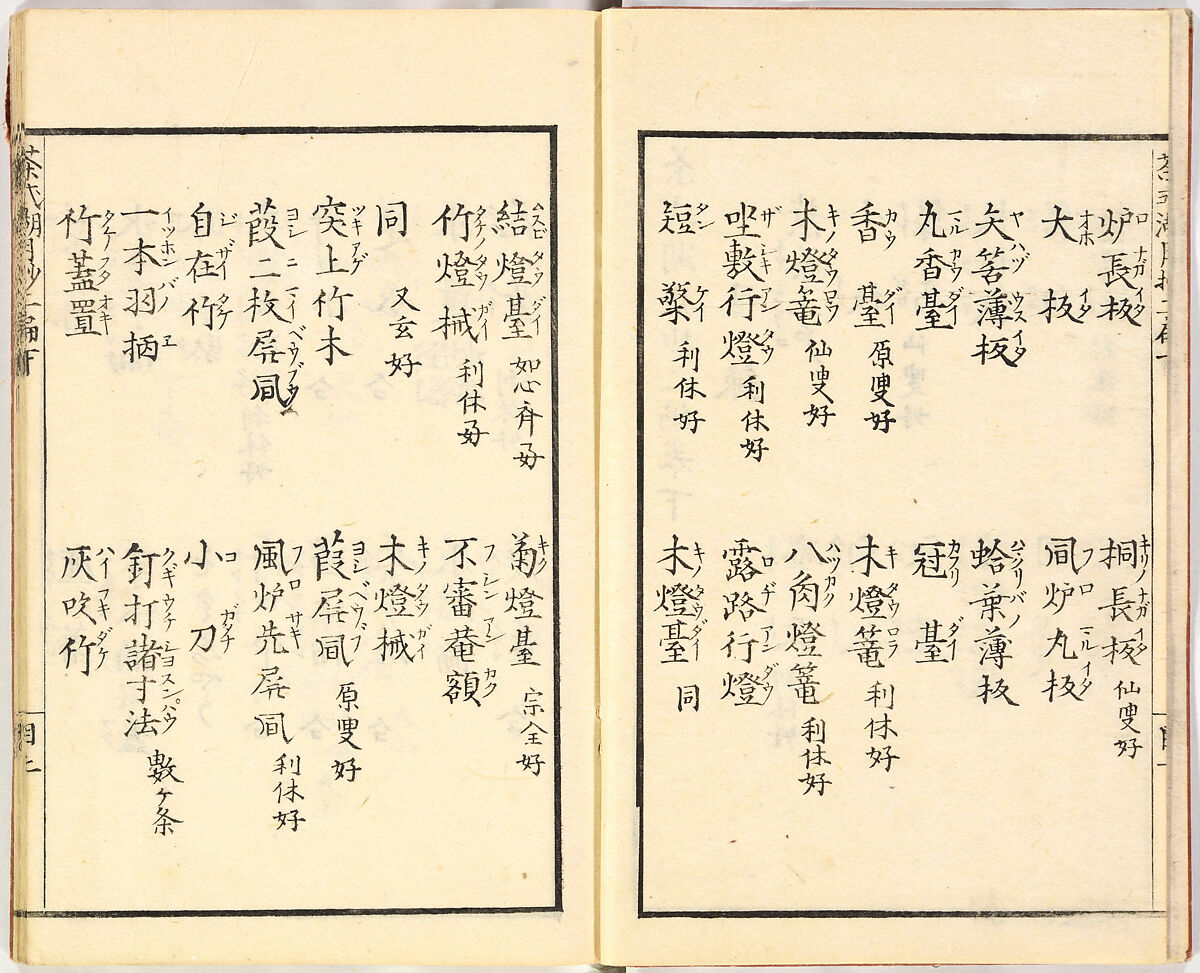 炉長板 桐長板 仙叟好
大板 風炉丸板
矢筈薄板 蛤葉薄板
丸香臺 冠臺
香臺 原叟好 木燈篭 利休好
木燈篭 仙叟好 八角燈篭 利休好
坐敷行燈 利休好 露路行燈
短檠 利休好 木燈臺 同
結燈臺 如心斉好 菊燈臺 宗全好
竹燈械 利休好 不審菴額
同 又玄好 木燈械
突上竹木 葭屏風 原叟好
葭二枚屏風 風炉先屏風 利休好
自在竹 小刀
一本羽柄 釘打諸寸法 數ケ条
竹蓋置 灰吹竹